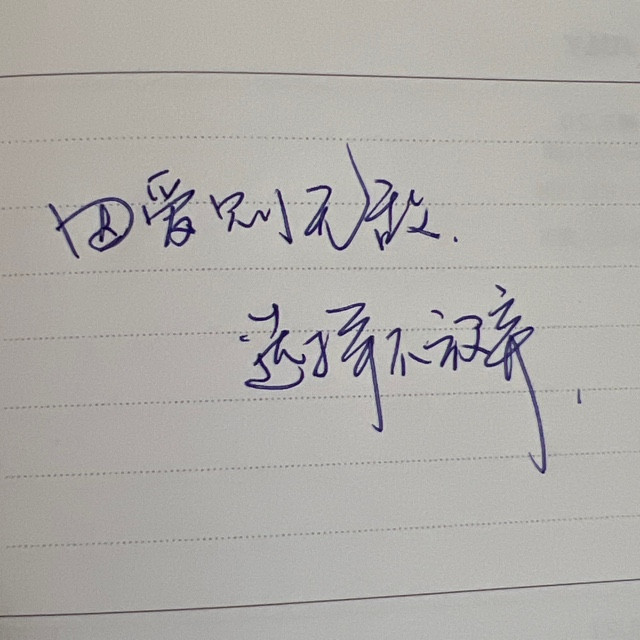 因爱则无敌.
选择不放弃.